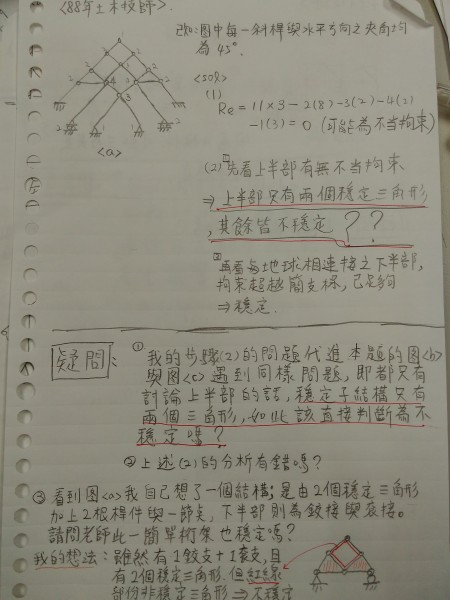 <88年土木技師>.
改如:圖中每一斜桿與水平方向之夾角均
為45°.
<sol>
(1)
Re = 11×3-2(8)-3(2)-4(2)
-1(3) = 0 (可能為不當拘束)
<a>
(2) ①先看上半部有無不當拘束
⇒ 上半部只有兩個穩定三角形
,其餘皆不穩定??
②再看與地球相連接之下半部,
拘束超越簡支樑,已足夠
⇒穩定.
疑問:
① 我的步驟(2)的問題代進本題的图<b>
與图<c>遇到同樣問題,即都只有
討論上半部的話,穩定子結構只有
兩個三角形,如此該直接判斷為不
穩定嗎?
②上述(2)的分析有錯嗎?
③看到图<a>我自己想了一個結構;是由2個穩定三角形
加上2根桿件與一節点,下半部則為鉸接與滾接。
請問老師此一簡單桁架也穩定嗎?
我的想法:雖然有1鉸支+1滾支,且
有2個穩定三角形.但紅線
部份非穩定三角形⇒不穩定